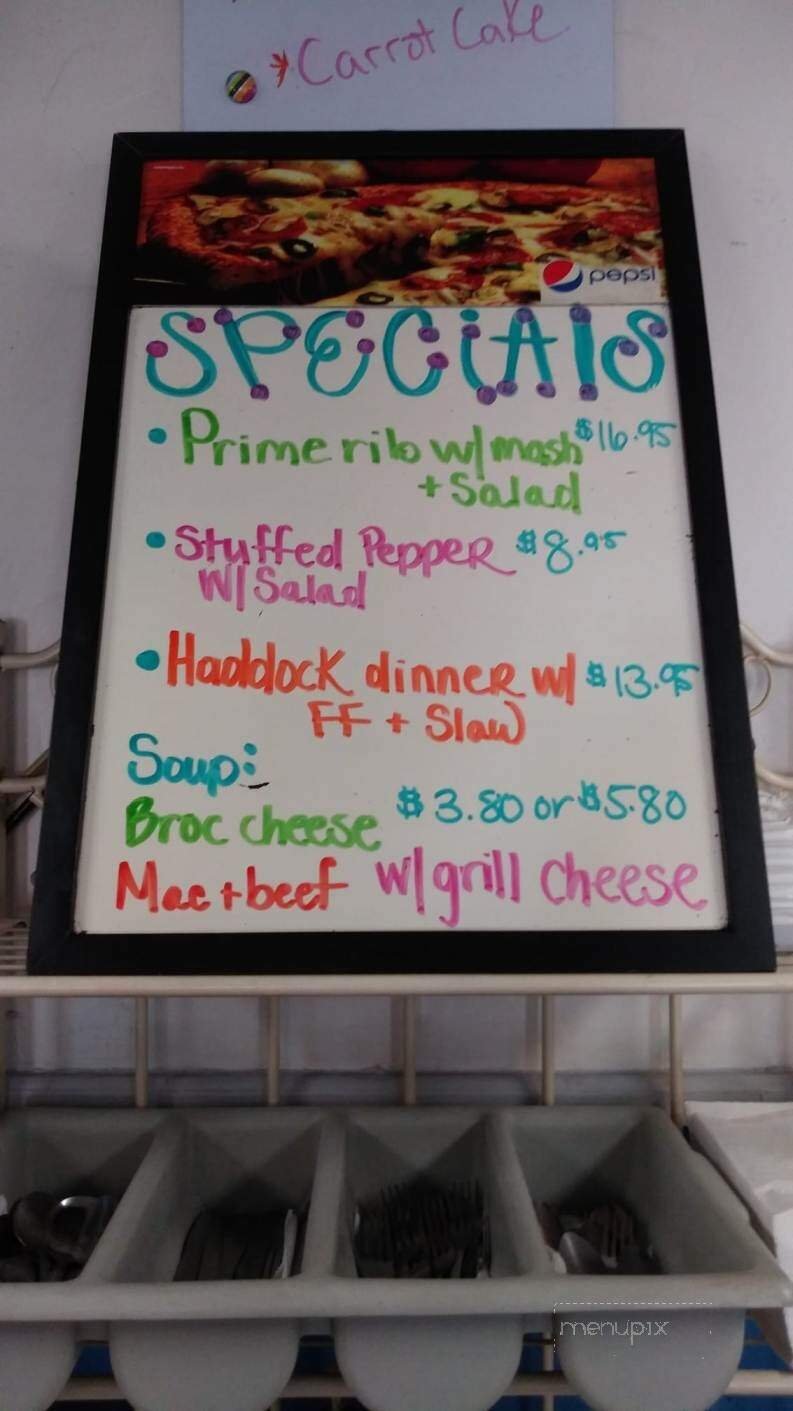 *Carrot Cake
pepsi
SPECiAlS
• Prime rib w/mash $16.95
+ Salad
• Stuffed Pepper $8.95
W/ Salad
• Haddock dinner w/ $13.95
FF + Slaw
Soup:
Broc cheese $3.80 or $5.80
Mac + beef w/grill cheese
menupix